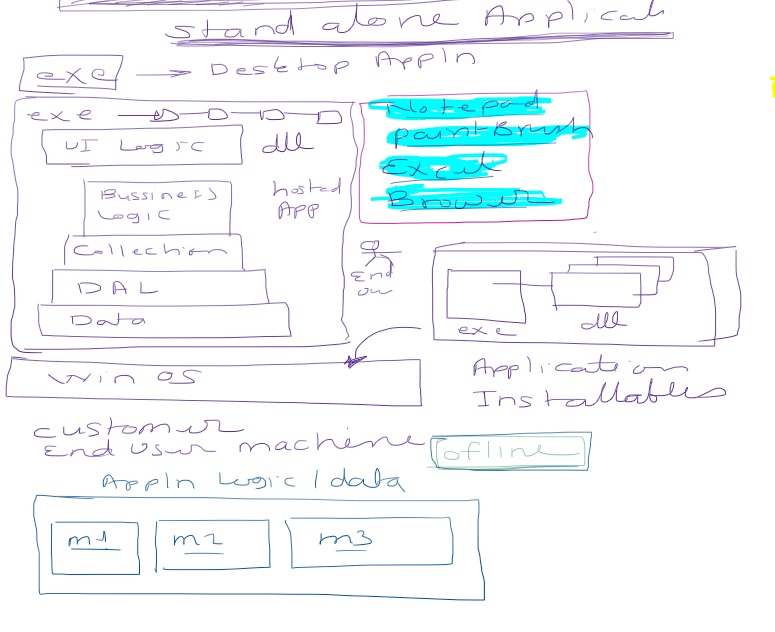 Stand alone Applicat
exe → Desktop Appln
exe
UI Logic
dll
Bussiness
Logic
hosted
App
Collection
DAL
Data
Notepad
PaintBrush
Excel
Browser
End
exe
dll
Application
Installables
Win OS
customer
End User machine
offline
Appln Logic / data
m1
m2
m3